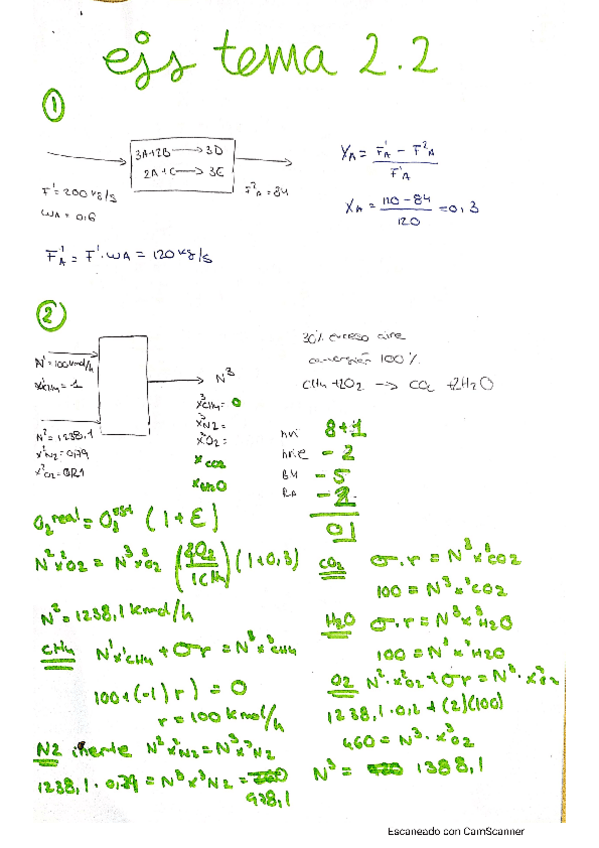 ejs tema 2.2
①
3A+2B → 3D
2A+C → 3E
F¹=200 kg/s
WA = 0,6
F²A = 84
XA = F¹A - F²A / F¹A
XA = 110-84 / 120 = 0,3
F¹A = F¹·WA = 120 kg/s
②
N¹=100 kmol/h
x¹CH4 = 1
N²=1238,1
x²N2=0,79
x²O2=0,21
N³
x³CH4= 0
x³N2=
x³O2=
xCO2
xH2O
30% exceso aire
conversión 100%
CH4 +2O2 → CO2 +2H2O
nvi 8+1
- 2
BM - 5
RA - 2
0
O2 real = O2 (1+E)
N²x²O2 = N³x³O2 (2O2 / 1CH4) (1+0,3)
N²=1238,1 kmol/h
CH4 N¹x¹CH4 + σr = N³x³CH4
100+(-1)r) = 0
r = 100 kmol/h
N2 inerte N²x²N2=N³x³N2
1238,1·0,79 = N³x³N2 =
978,1
CO2 σ.r = N³x³CO2
100 = N³x³CO2
H2O σ.r = N³x³H2O
100 = N³x³H2O
O2 N²·x²O2+σr = N³·x³O2
1238,1·0,2 + (2)(100)
460 = N³·x³O2
N³ = 1388,1
Escaneado con CamScanner